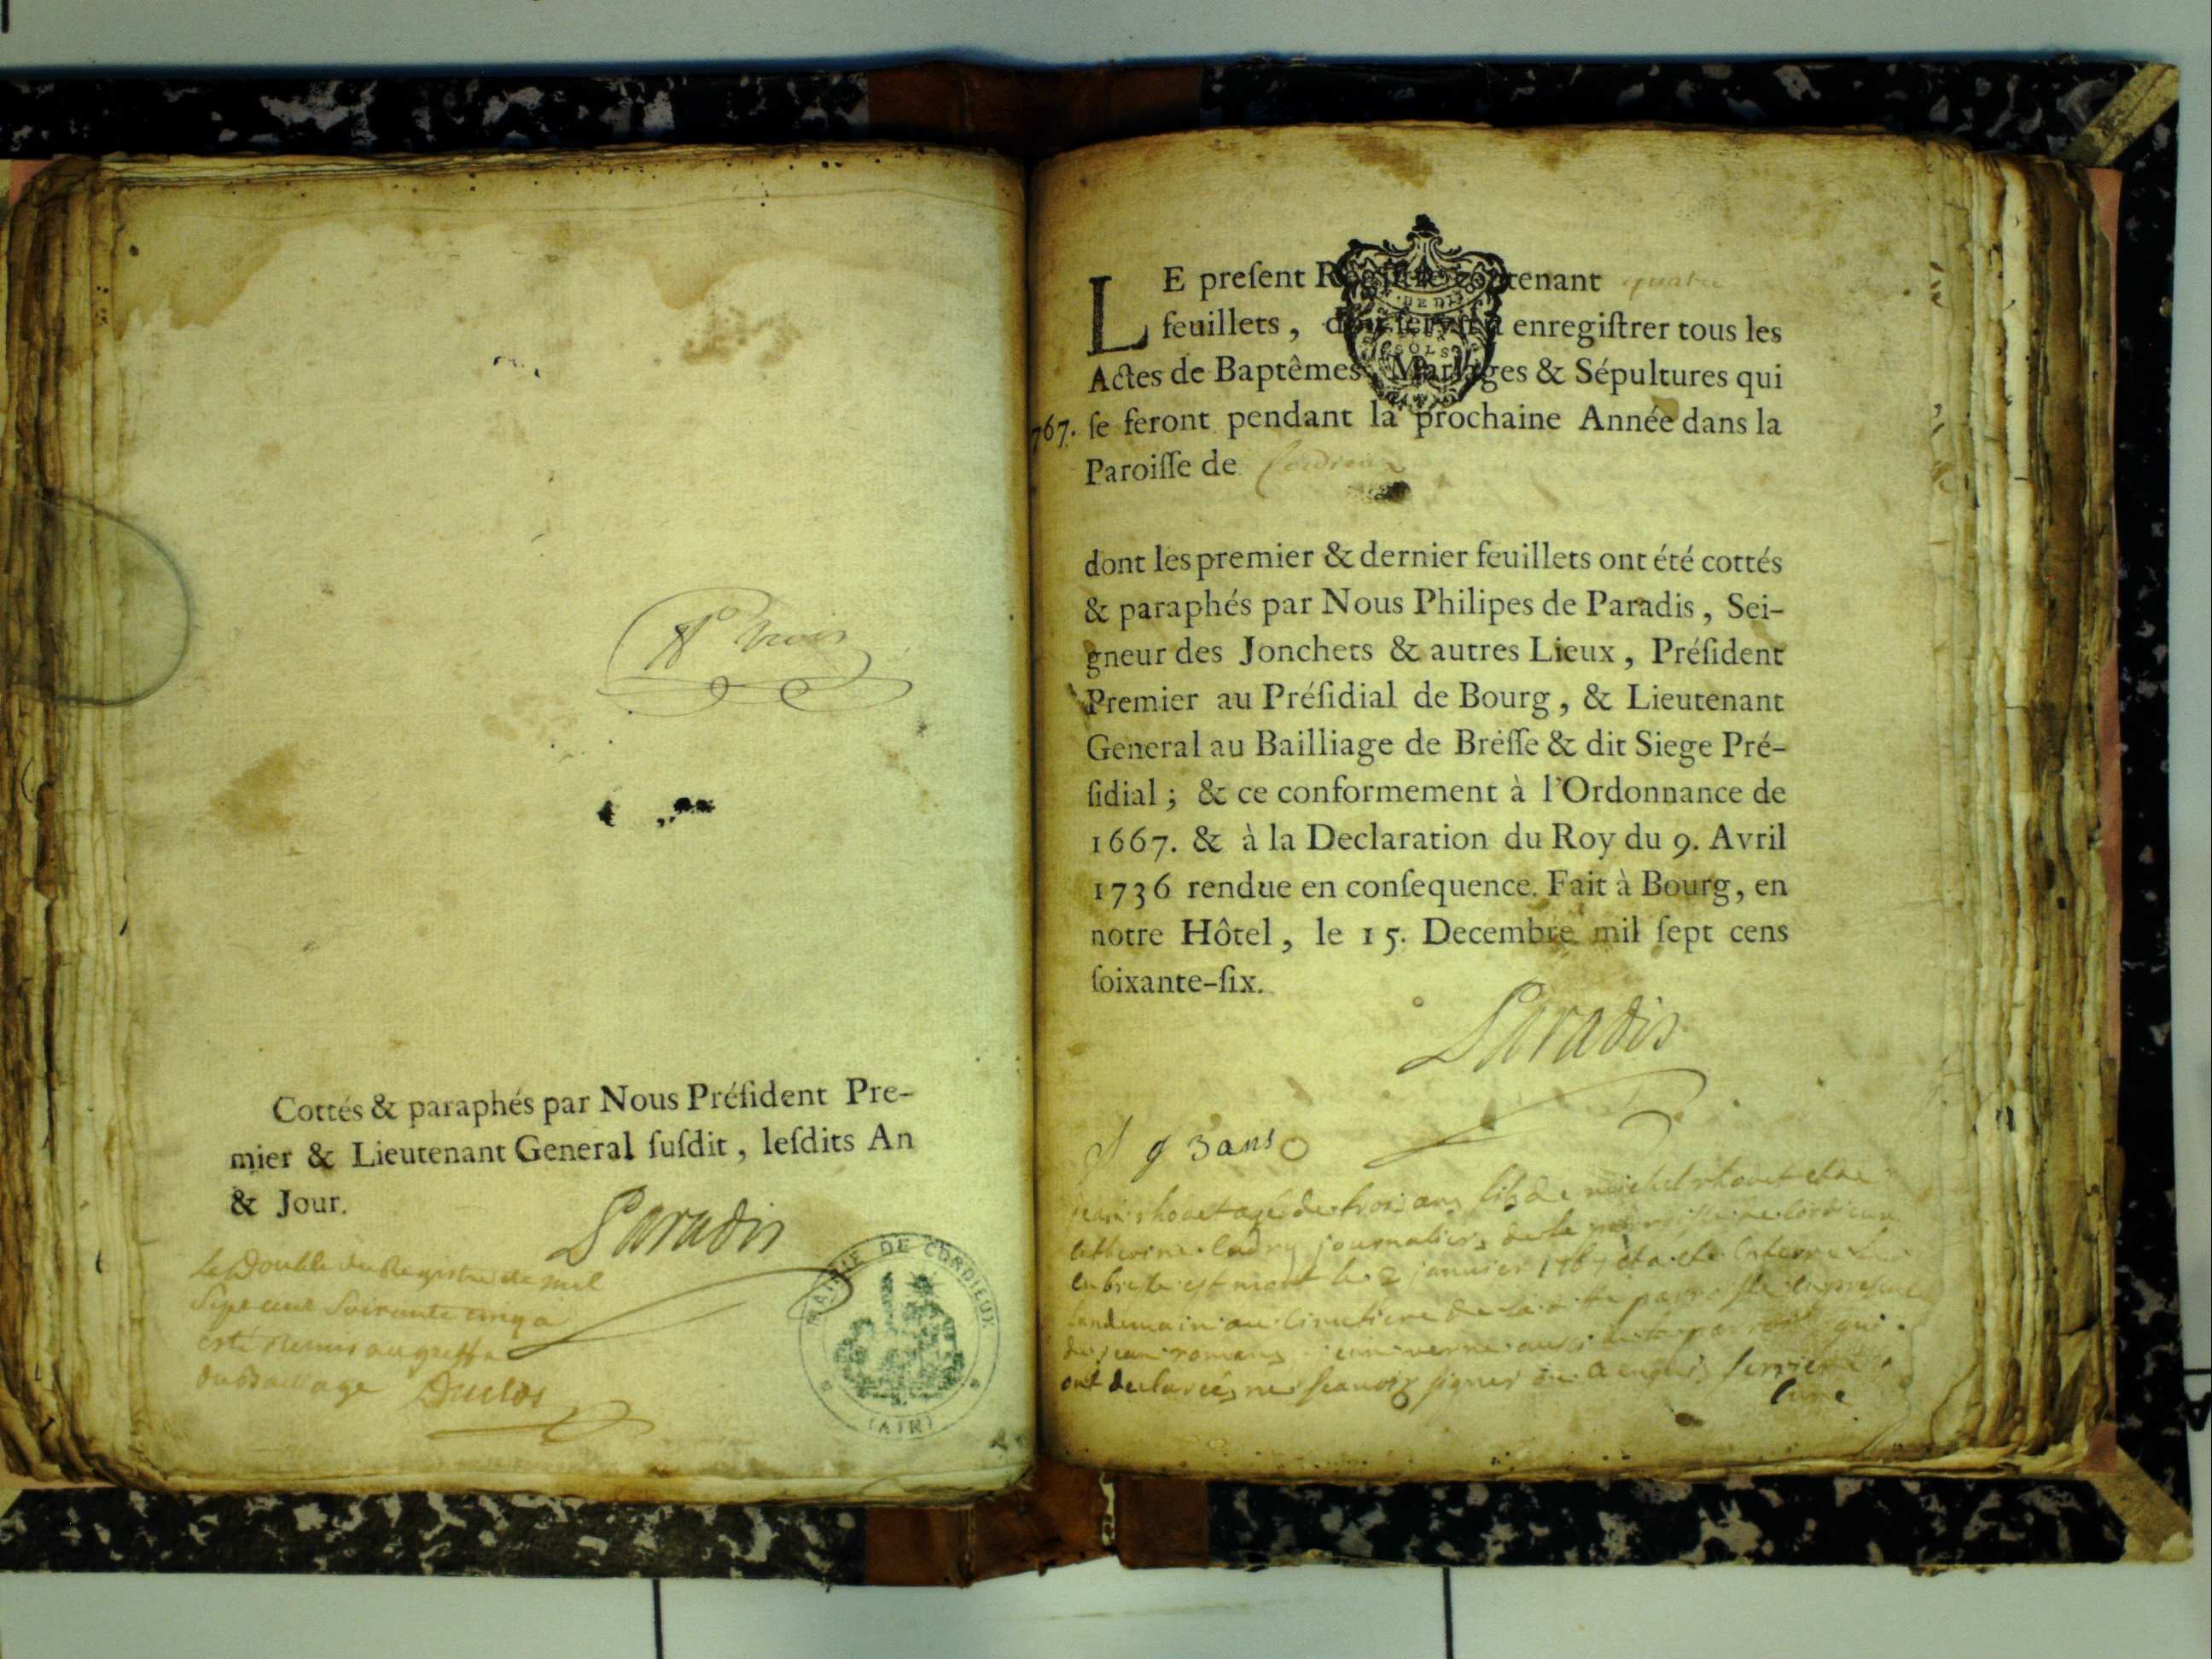 Cottés & paraphés par Nous Préſident Pre-
mier & Lieutenant General ſuſdit, leſdits An
& Jour.
Paradis
Le Double du Registre de mil
Sept cent Soixante cinq a
esté Remis au greffe
du Baillage Duclos
MAIRIE DE CORDIEUX
(AIN)
LE preſent Regiſtre contenant quatre
feuillets, doit ſervir à enregiſtrer tous les
Actes de Baptêmes, Mariages & Sépultures qui
767. ſe feront pendant la prochaine Année dans la
Paroiſſe de Cordieux
dont les premier & dernier feuillets ont été cottés
& paraphés par Nous Philipes de Paradis, Sei-
gneur des Jonchets & autres Lieux, Préſident
Premier au Préſidial de Bourg, & Lieutenant
General au Bailliage de Breſſe & dit Siege Pré-
ſidial; & ce conformement à l'Ordonnance de
1667. & à la Declaration du Roy du 9. Avril
1736 rendue en conſequence. Fait à Bourg, en
notre Hôtel, le 15. Decembre mil ſept cens
ſoixante-ſix.
Paradis
3 ans
jean agé de trois ans fils de michel et de
journaliers de la de cordieux
en bresse est mort le 2 janvier 1767 et a ete enterré le
landemain au de la parroisse
de jean verne qui
ont declarés ne sçauoir signer
Curé